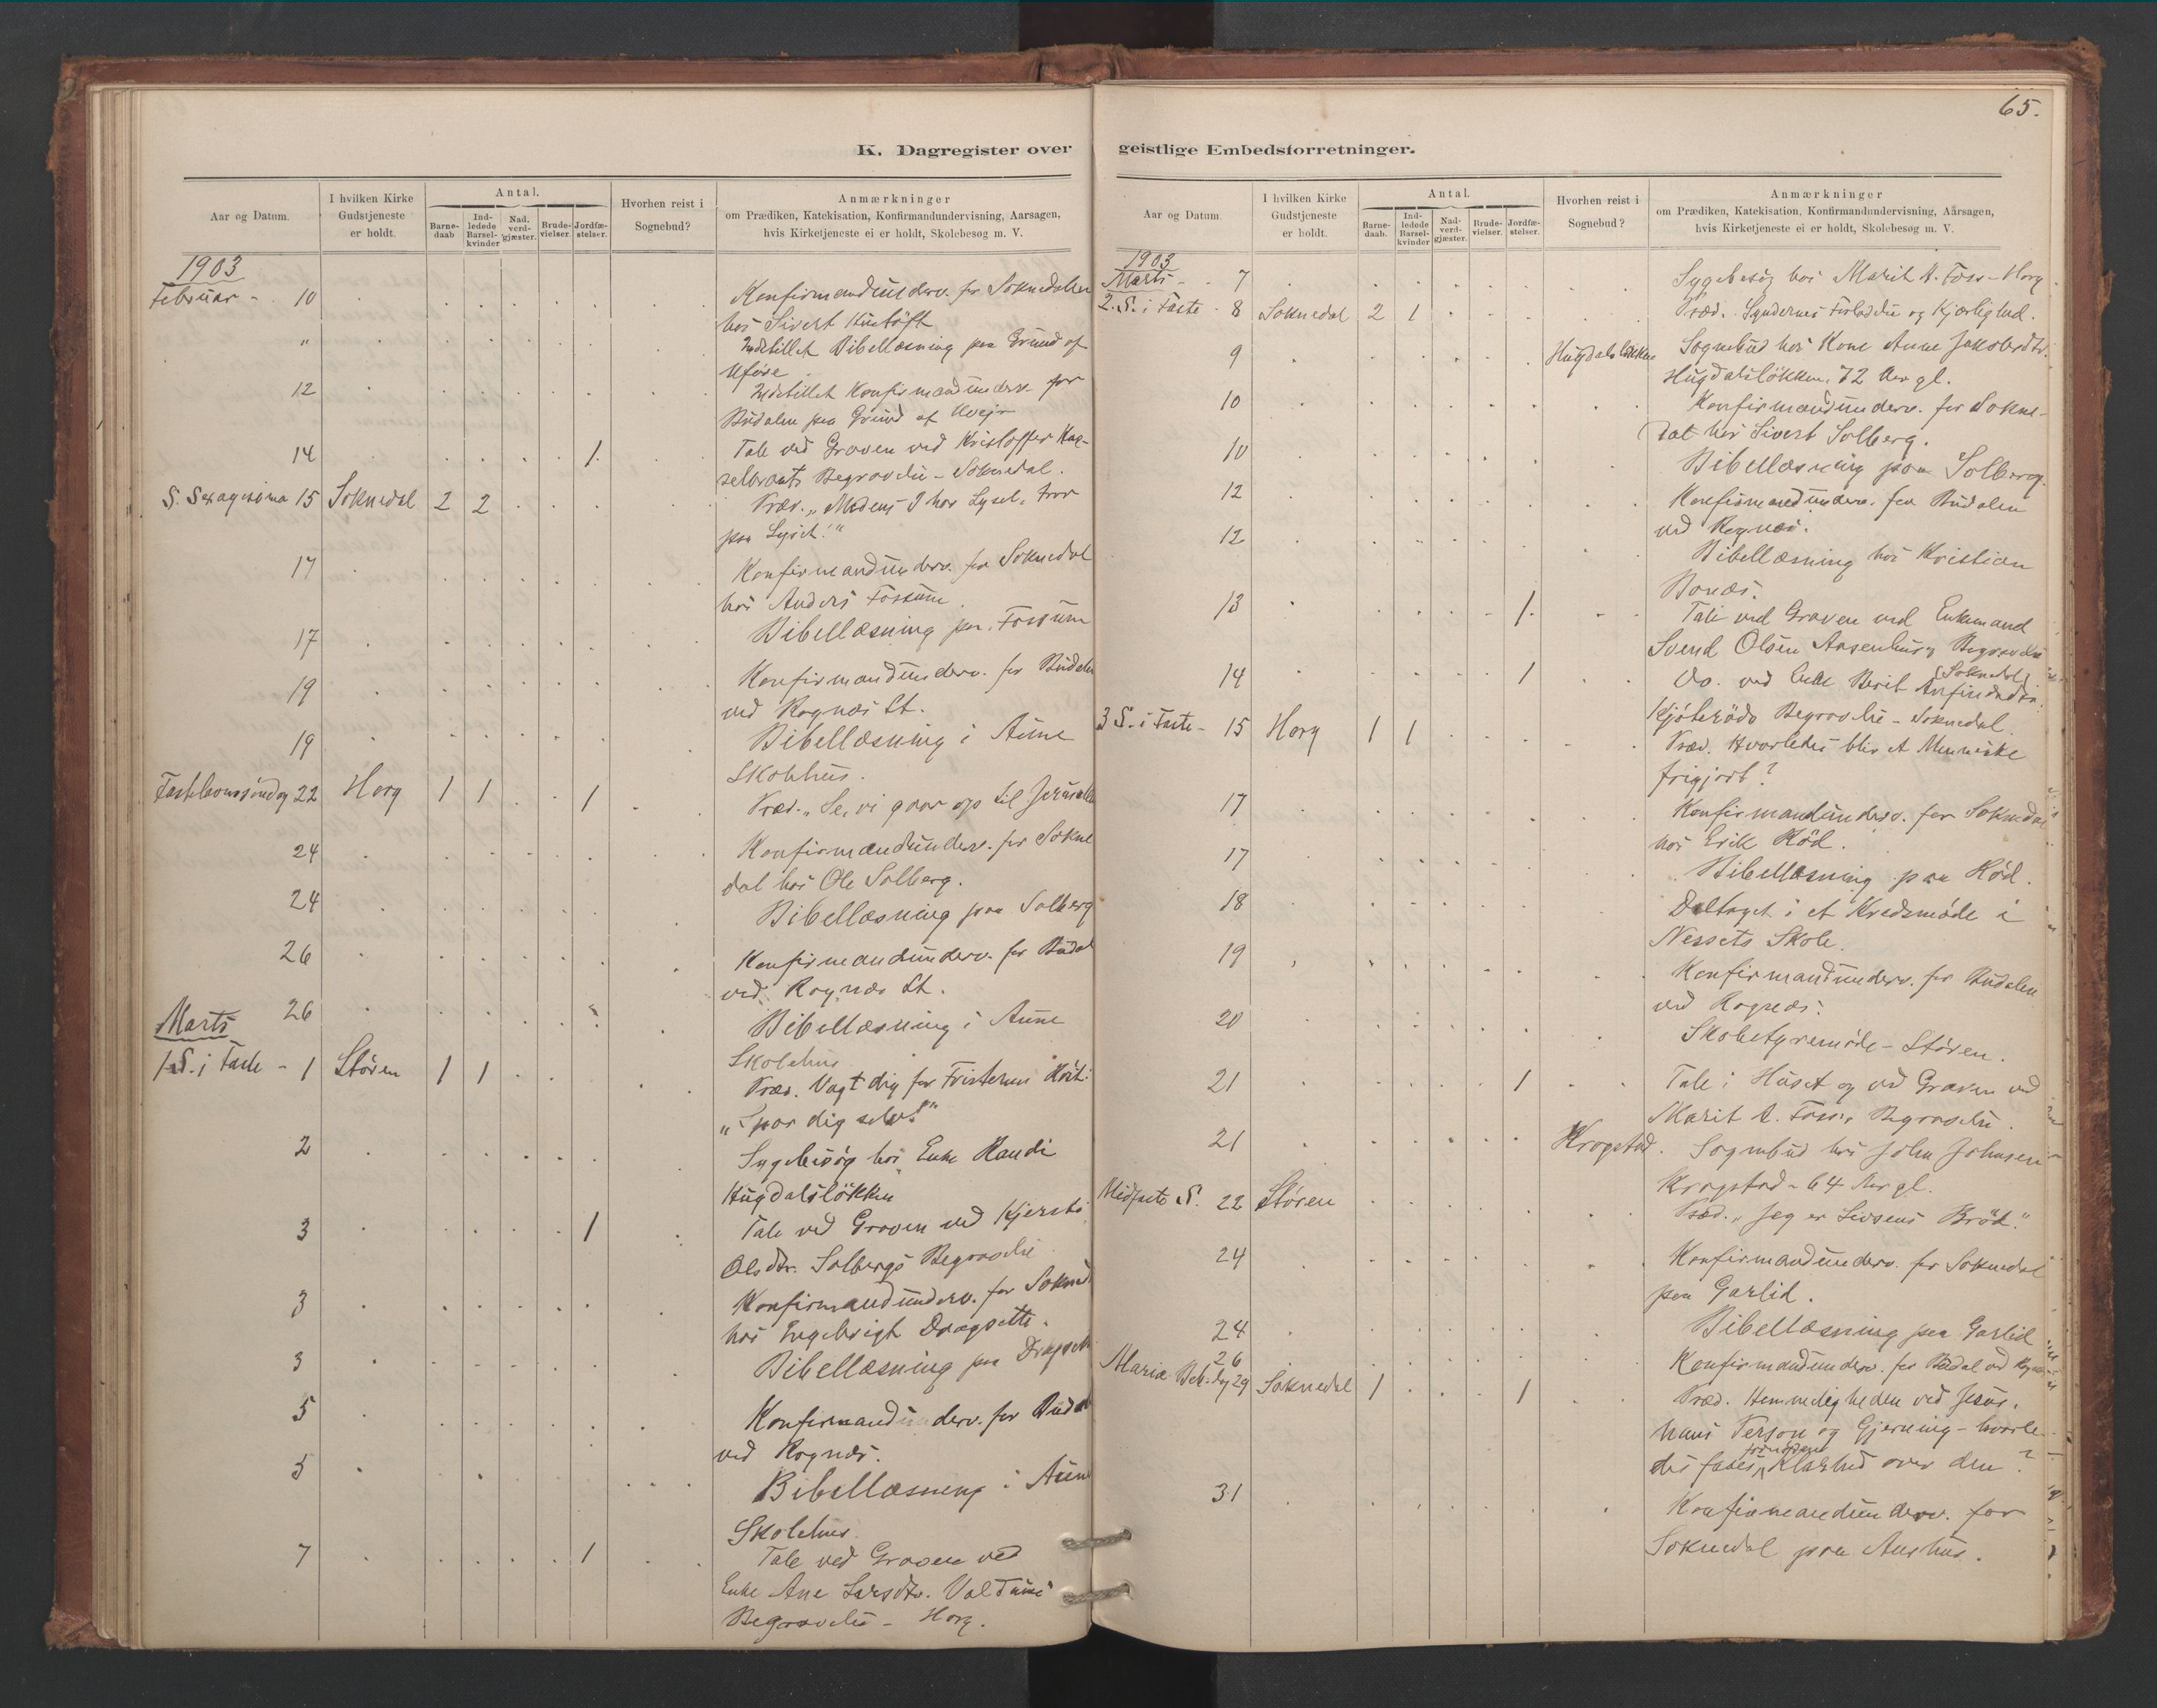 65.
K. Dagregister over
Aar og Datum.
I hvilken Kirke Gudstjeneste er holdt.
Antal.
Barne-daab
Ind-ledede Barsel-kvinder
Nad. verd-gjæster.
Brude-vielser.
Jordfæ-stelser.
Hvorhen reist i Sognebud?
Anmærkninger
om Prædiken, Katekisation, Konfirmandundervisning, Aarsagen,
hvis Kirketjeneste ei er holdt, Skolebesøg m. V.
1903
Februar - 10 Konfirmandunderv. for Soknedalen
hos Sivert
" Indstillet Bibellæsning paa Grund af
Uføre
12 Indstillet Konfirmandunderv. for
Budalen paa Grund af Uvejr
14 1. Tale ved Graven ved Kristoffer
Begravelse - Soknedal.
S. Sexagesima 15 Soknedal 2 2 Præd. "Medens I har Lyset, tror
paa Lyset!"
17 Konfirmandunderv. for Soknedal
hos Anders Fossum
17 Bibellæsning paa Fossum
19 Konfirmandunderv. for Budalen
ved Rognæs St.
19 Bibellæsning i Aune
Skolehus.
Fastelavnssöndag 22 Horg 1 1 1 Præd. "Se, vi gaar op til
24 Konfirmandunderv. for Sokne
dal hos Ole Solberg.
24 Bibellæsning paa Solberg
26 Konfirmandunderv. for Budal
ved Rognæs St.
26 Bibellæsning i Aune
Skolehus
Marts
1 S. i Faste - 1 Stören 1 1 Præd. Vogt dig for Fristerens Röst:
"Spar dig selv!"
2 Sygebesög hos Enke Randi
Hugdalslökken
3 1 Tale ved Graven ved Kjersti
Olsdtr. Solbergs Begravelse
3 Konfirmandunderv. for Sokned
hos Engebrigt Dragsette.
3 Bibellæsning paa Dragsett
5 Konfirmandunderv. for Budal
ved Rognæs.
5 Bibellæsning i Aune
Skolehus.
7 1 Tale ved Graven ved
Enke Ane Larsdtr.
Begravelse - Horg.
geistlige Embedsforretninger.
Aar og Datum.
I hvilken Kirke Gudstjeneste er holdt.
Antal.
Barne-daab.
Ind-ledede Barsel-kvinder
Nad-verd-gjæster.
Brude-vielser.
Jordfæ-stelser.
Hvorhen reist i Sognebud?
Anmærkninger
om Prædiken, Katekisation, Konfirmandundervisning, Aårsagen,
hvis Kirketjeneste ei er holdt, Skolebesøg m. V.
1903
Marts - 7 Sygebesög hos Marit A. Foss - Horg
2. S. i Faste - 8 Soknedal 2 1 Præd. Syndernes Forladelse og Kjærlighed.
9 Hugdalslökken Sognebud hos Kone Anne Jakobsdtr.
Hugdalslökken, 72 Aar gl.
10 Konfirmandunderv. for Sokne-
dal hos Sivert Solberg.
10 Bibellæsning paa Solberg.
12 Konfirmandunderv. for Budalen
ved Rognæs.
12 Bibellæsning hos Kristian
Bonæs.
13 1. Tale ved Graven ved Enkemand
Svend Olsen Begravelse
(Soknedal)
14 1 Do. ved Enke Berit Arfindsdtr.
Begravelse - Soknedal.
3 S. i Faste - 15 Horg 1 1 Præd. Hvorledes blir et Menneske
frigjort?
17 Konfirmandunderv. for Soknedal
hos Erik Röd.
17 Bibellæsning paa Röd.
18 Deltaget i et Kredsmöde i
Nessets Skole.
19 Konfirmandunderv. for Budalen
ved Rognæs.
20 Skolestyremöde - Stören.
21 1 Tale i Huset og ved Graven ved
Marit A. Foss's Begravelse.
21 Krogstad. Sognebud hos John Johnsen
Krogstad - 64 Aar gl.
Midfaste S. 22 Stören Præd. "Jeg er Livsens Bröd."
24 Konfirmandunderv. for Soknedal
paa Garlid.
24 Bibellæsning paa Garlid
26 Konfirmandunderv. for Budal ved Rognæs
Mariæ Beb. dag 29 Soknedal 1 1 Præd. Hemmeligheden ved Jesus.
hans Person og Gjerning - hvorle-
des faaes fornöden Klarhed over den?
31 Konfirmandunderv. for
Soknedal paa Aashus.